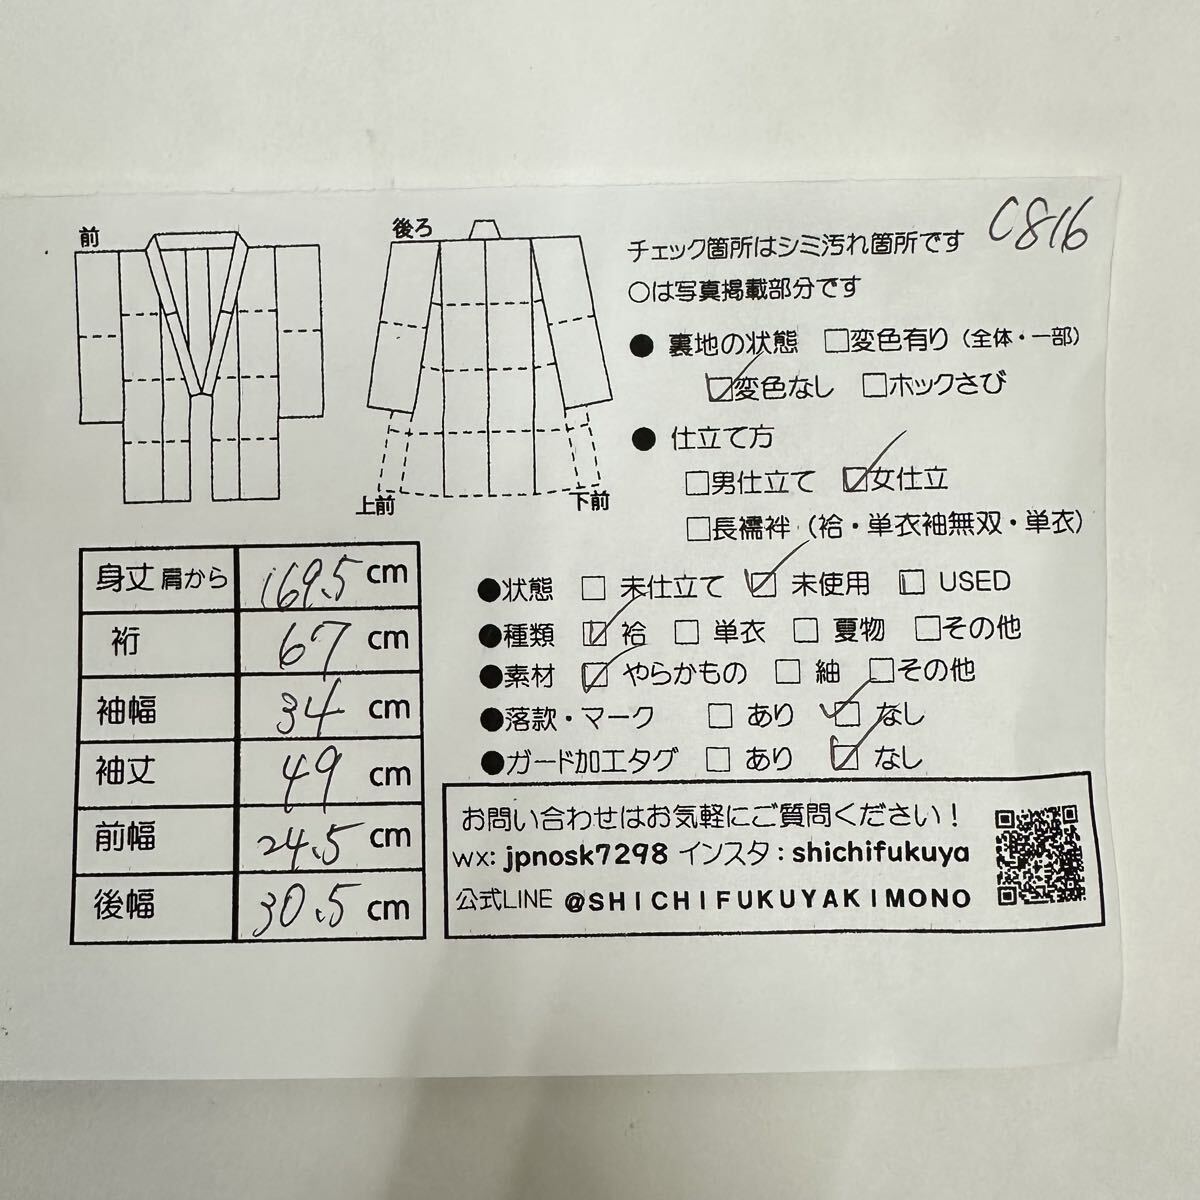 前
後ろ
上前
下前
C816
チェック箇所はシミ汚れ箇所です
○は写真掲載部分です
● 裏地の状態 □変色有り(全体・一部)
☑変色なし □ホックさび
● 仕立て方
□男仕立て ☑女仕立
□長襦袢(袷・単衣袖無双・単衣)
●状態 □ 未仕立て ☑ 未使用 □ USED
●種類 ☑ 袷 □ 単衣 □ 夏物 □その他
●素材 ☑ やらかもの □ 紬 □その他
●落款・マーク □ あり ☑ なし
●ガード加工タグ □ あり ☑ なし
身丈 肩から 169.5 cm
裄 67 cm
袖幅 34 cm
袖丈 49 cm
前幅 24.5 cm
後幅 30.5 cm
お問い合わせはお気軽にご質問ください!
wx: jpnosk7298 インスタ:shichifukuya
公式LINE @SHICHIFUKUYAKIMONO